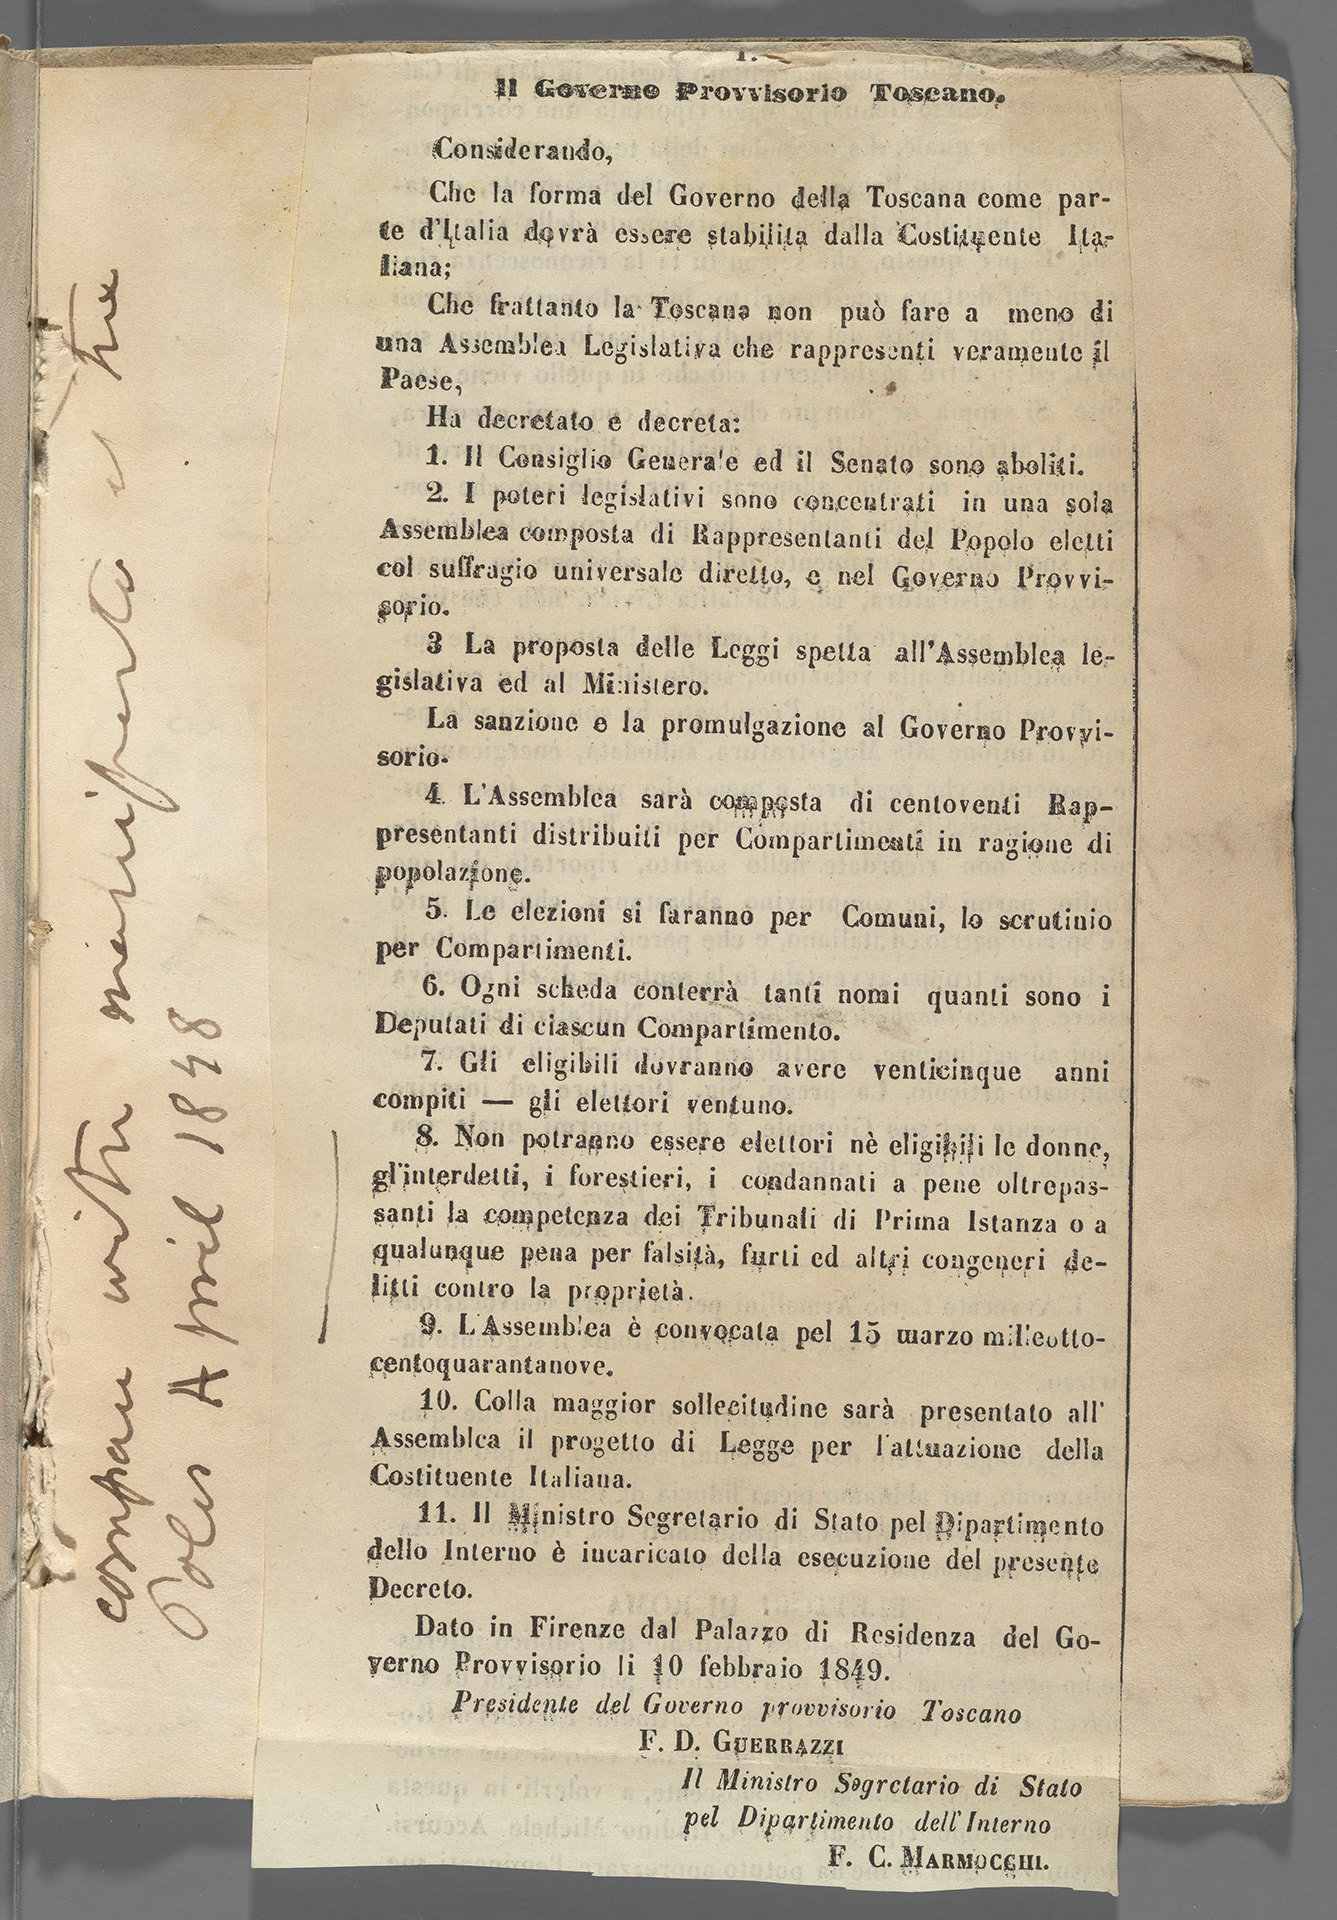 1.
Il Governo Provvisorio Toscano.
Considerando,
Che la forma del Governo della Toscana come par-
te d'Italia dovrà essere stabilita dalla Costituente Ita-
liana;
Che frattanto la Toscana non può fare a meno di
una Assemblea Legislativa che rappresenti veramente il
Paese,
Ha decretato e decreta:
1. Il Consiglio Generale ed il Senato sono aboliti.
2. I poteri legislativi sono concentrati in una sola
Assemblea composta di Rappresentanti del Popolo eletti
col suffragio universale diretto, e nel Governo Provvi-
sorio.
3 La proposta delle Leggi spetta all'Assemblea le-
gislativa ed al Ministero.
La sanzione e la promulgazione al Governo Provvi-
sorio.
4. L'Assemblea sarà composta di centoventi Rap-
presentanti distribuiti per Compartimenti in ragione di
popolazione.
5. Le elezioni si faranno per Comuni, lo scrutinio
per Compartimenti.
6. Ogni scheda conterrà tanti nomi quanti sono i
Deputati di ciascun Compartimento.
7. Gli eligibili dovranno avere venticinque anni
compiti — gli elettori ventuno.
8. Non potranno essere elettori nè eligibili le donne,
gl'interdetti, i forestieri, i condannati a pene oltrepas-
santi la competenza dei Tribunali di Prima Istanza o a
qualunque pena per falsità, furti ed altri congeneri de-
litti contro la proprietà.
9. L'Assemblea è convocata pel 15 marzo milleotto-
centoquarantanove.
10. Colla maggior sollecitudine sarà presentato all'
Assemblea il progetto di Legge per l'attuazione della
Costituente Italiana.
11. Il Ministro Segretario di Stato pel Dipartimento
dello Interno è incaricato della esecuzione del presente
Decreto.
Dato in Firenze dal Palazzo di Residenza del Go-
verno Provvisorio li 10 febbraio 1849.
Presidente del Governo provvisorio Toscano
F. D. GUERRAZZI
Il Ministro Segretario di Stato
pel Dipartimento dell'Interno
F. C. MARMOCCHI.
compare with manifesto of the
Poles April 1848